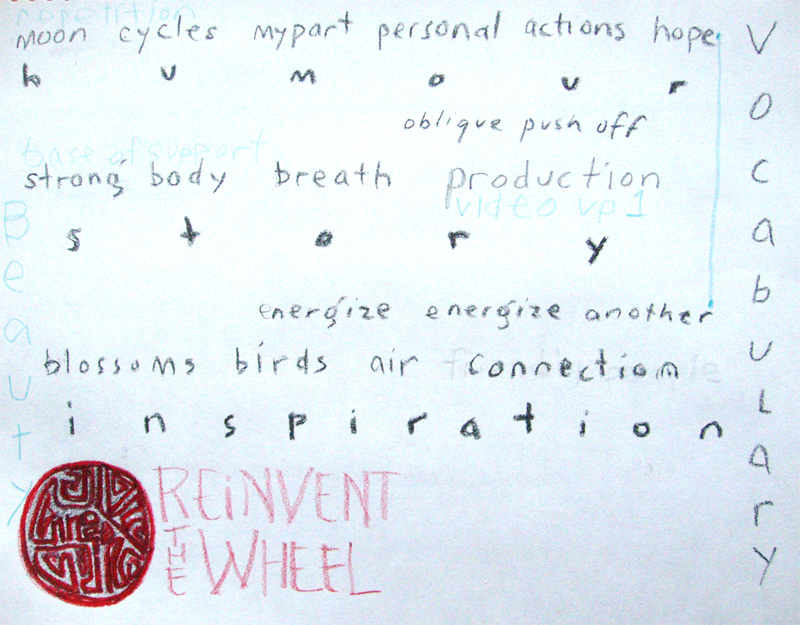 repetition
moon cycles mypart personal actions hope
humour
oblique push off
base of support
strong body breath production
video up 1
story
energize energize another
blossoms birds air connection
inspiration
REiNVENT
THE
WHEEL
Beauty
VOCabULARY